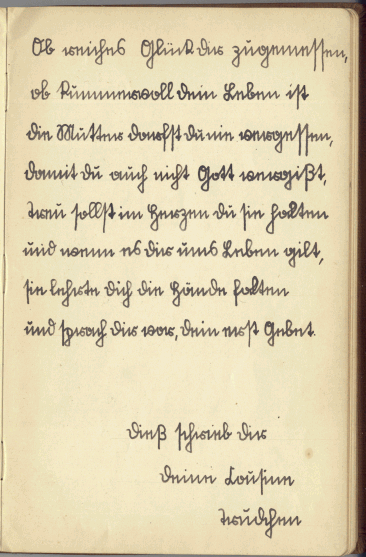 Ob reiches Glück dir zugemessen,
ob kummervoll dein Leben ist
die Mutter darfst du nie vergessen,
damit du auch nicht Gott vergißt,
treu sollst im Herzen du sie halten
und wenn es dir ums Leben gilt,
sie lehrte dich die Hände falten
und sprach dir vor, dein erst Gebet.
dieß schrieb dir
deine Cousine
Trudchen